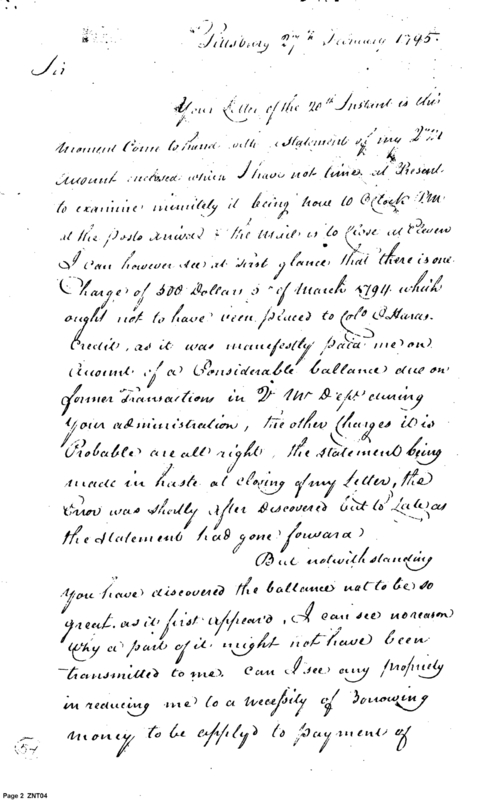 Pittsburg 27th February 1795.
Sir
Your Letter of the 20th Instant is this
moment Come to hand with a Statement of my
account enclosed which I have not time at Present
to examine minitely it being now 10 OClock PM
at the posts arrival & the mail is to Close at Eleven
I can however see at first glance that there is one
Charge of 500 Dollars 3d of March 1794 which
ought not to have been placed to Colo OHaras
Credit, as it was manefestly paid me on
account of a Considerable ballance due on
former Transactions in Qr Mr Dept during
Your administration, the other Charges it is
Probable are all right, the statement being
made in haste at closing of my Letter, the
Error was shortly after discovered but to Late as
the statement had gone forward
But notwithstanding
You have discovered the ballance not to be so
great as it first appeard, I can see no reason
Why a part of it might not have been
transmitted to me. Can I see any propriety
in reducing me to a necessity of Borrowing
money to be applyd to payment of
54
Page 2 ZNT04